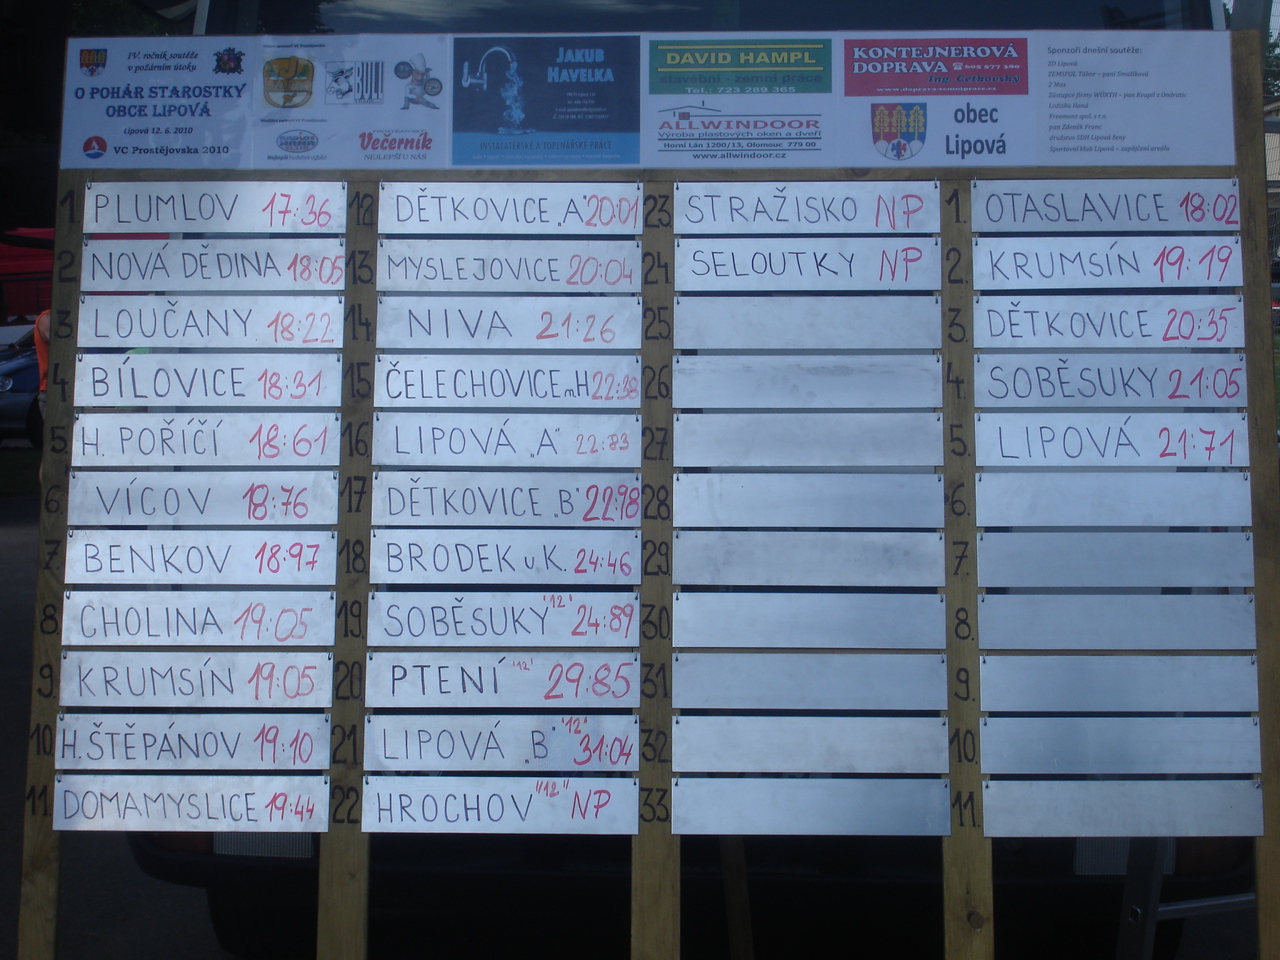 IV. ročník soutěže
v požárním útoku
O POHÁR STAROSTKY
OBCE LIPOVÁ
Lipová 12. 6. 2010
VC Prostějovska 2010
BULL
Večerník
NEJLEPŠÍ U NÁS
JAKUB
HAVELKA
INSTALATÉRSKÉ A TOPENÁŘSKÉ PRÁCE
DAVID HAMPL
stavební - zemní práce
Tel.: 723 289 365
ALLWINDOOR
Výroba plastových oken a dveří
Horní Lán 1200/13, Olomouc 779 00
www.allwindoor.cz
KONTEJNEROVÁ
DOPRAVA
Ing. Čečkovský
obec
Lipová
Sponzoři dnešní soutěže:
ZD Lipová
1. PLUMLOV 17:36
2. NOVÁ DĚDINA 18:05
3. LOUČANY 18:22
4. BÍLOVICE 18:31
5. H. POŘÍČÍ 18:61
6. VÍCOV 18:76
7. BENKOV 18:97
8. CHOLINA 19:05
9. KRUMSÍN 19:05
10. H. ŠTĚPÁNOV 19:10
11. DOMAMYSLICE 19:44
12. DĚTKOVICE „A" 20:01
13. MYSLEJOVICE 20:04
14. NIVA 21:26
15. ČELECHOVICE nH 22:38
16. LIPOVÁ „A" 22:83
17. DĚTKOVICE „B" 22:98
18. BRODEK u K. 24:46
19. SOBĚSUKY "12" 24:89
20. PTENÍ "12" 29:85
21. LIPOVÁ „B" "12" 31:04
22. HROCHOV "12" NP
23. STRAŽISKO NP
24. SELOUTKY NP
25
26
27
28
29
30
31
32
33
1. OTASLAVICE 18:02
2. KRUMSÍN 19:19
3. DĚTKOVICE 20:35
4. SOBĚSUKY 21:05
5. LIPOVÁ 21:71
6.
7.
8.
9.
10.
11.